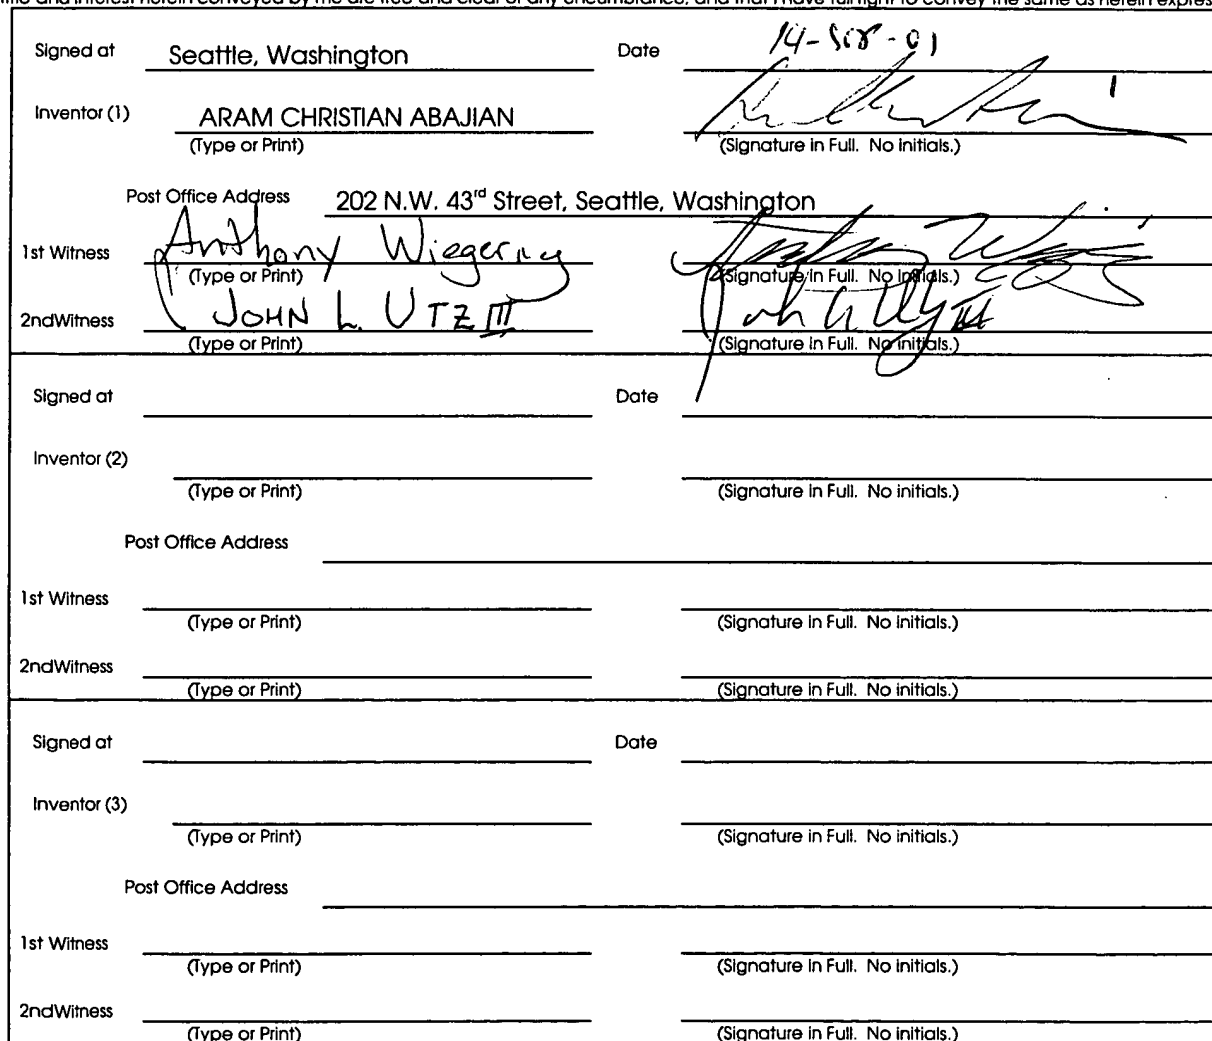 title and interest herein conveyed by me are free and clear of any encumbrance, and that I have full right to convey the same as herein expres
Signed at Seattle, Washington Date 14-Sep-01
Inventor (1) ARAM CHRISTIAN ABAJIAN
(Type or Print) (Signature in Full. No initials.)
Post Office Address 202 N.W. 43rd Street, Seattle, Washington
1st Witness Anthony Wiegering
(Type or Print) (Signature in Full. No initials.)
2ndWitness JOHN L. UTZ III
(Type or Print) (Signature in Full. No initials.)
Signed at Date
Inventor (2)
(Type or Print) (Signature in Full. No initials.)
Post Office Address
1st Witness
(Type or Print) (Signature in Full. No initials.)
2ndWitness
(Type or Print) (Signature in Full. No initials.)
Signed at Date
Inventor (3)
(Type or Print) (Signature in Full. No initials.)
Post Office Address
1st Witness
(Type or Print) (Signature in Full. No initials.)
2ndWitness
(Type or Print) (Signature in Full. No initials.)